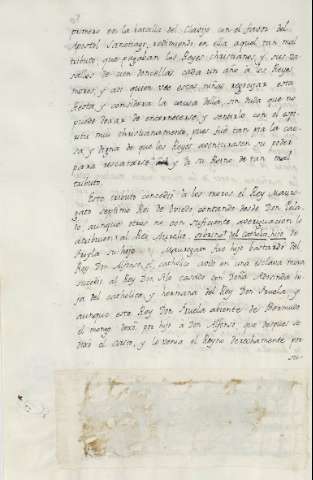 primero en la batalla del Clavijo con el favor del
Apostol Sanctiago, redimiendo en ella aquel tan mal
tributo que pagaban los Reyes christianos, y sus va-
sallos de cien doncellas cada un año a los Reyes
moros, y asi quien vee estas niñas regocijar esta
fiesta, y considera la causa della, sin duda que no
puede dexar de enternecerse, y sentirlo con el espi-
ritu muy christianamente, pues fue tan pia la cau-
sa y digna de que los Reyes aventurasen su poder
para rescatarse y a su Reyno de tan mal
tributo.
Este tributo concedió a los moros el Rey Maure-
gato septimo Rei de Oviedo contando desde Don Pela-
io aunque otros no con suficiente averiguacion lo
atribuien al Rey Aurelio, sobrino del Catholico, hijo de
Fruyla su hijo. Mauregato fue hijo bastardo del
Rey Don Alfonso el catholico avido en una esclava mora
sucedio al Rey Don Silo casado con Doña Adosinda hi-
ja del catholico, y hermana del Rey Don Fruela, y
aunque este Rey Don Fruela ... de Bermudo
el monge dexó por hijo a Don Alfonso, que despues se
dixo el casto, y le venia el Reyno derechamente por
su